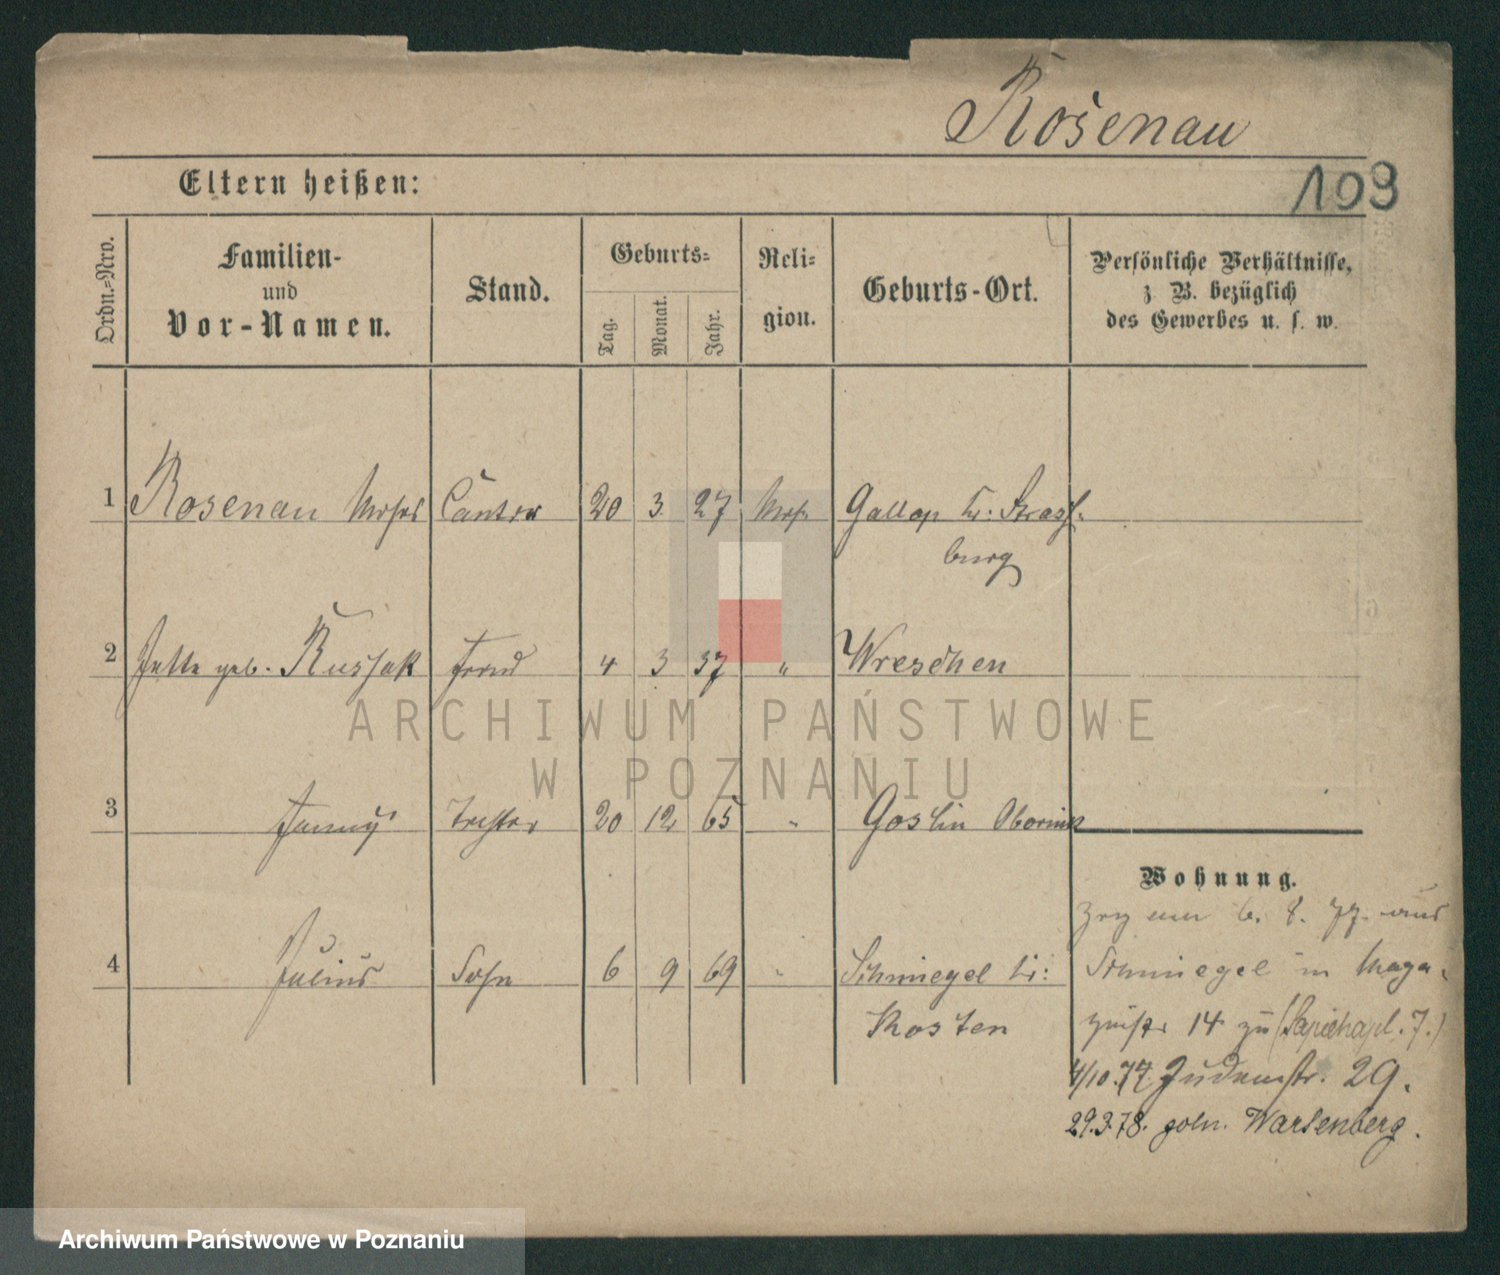 Rosenau
109
Eltern heißen:
Ordn.=Nro.
Familien-
und
Vor-Namen.
Stand.
Geburts-
Tag.
Monat.
Jahr.
Reli-
gion.
Geburts-Ort.
Persönliche Verhältnisse,
z. B. bezüglich
des Gewerbes u. s. w.
1 Rosenau Moses Cantor 20 3 27 Mos. Gollop Kr: Stras-
burg
2 Jette geb. Russak Frau 4 3 37 " Wreschen
ARCHIWUM PAŃSTWOWE
W POZNANIU
3 Fanny Tochter 20 12 65 " Goslin Obornik
Wohnung.
Zog am 6. 8. 77. aus
4 Julius Sohn 6 9 69 " Schmiegel Kr:
Kosten
Schmiegel in Maga-
zinstr 14 zu (Sapiehapl. 7.)
4/10.77. Judenstr. 29.
29.3.78. Wartenberg.
Archiwum Państwowe w Poznaniu